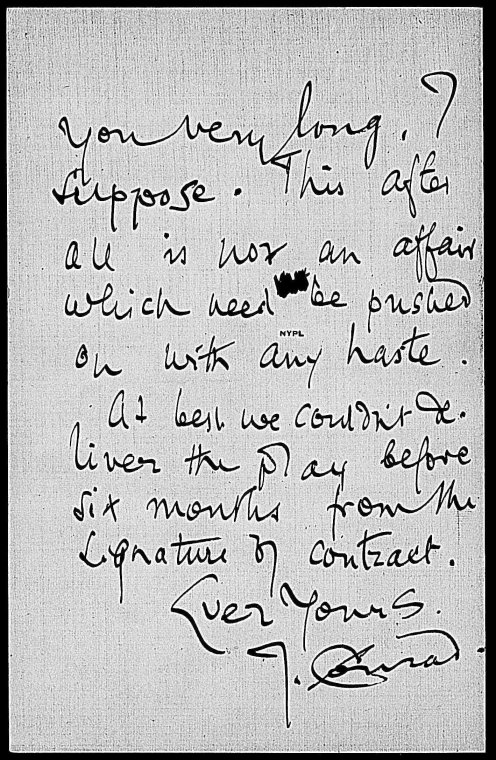 you very long. I
suppose. This after
all is not an affair
which need be pushed
NYPL
on with any haste.
At best we couldn't de-
liver the play before
six months from the
signature of contract.
Ever Yours.
J. Conrad.